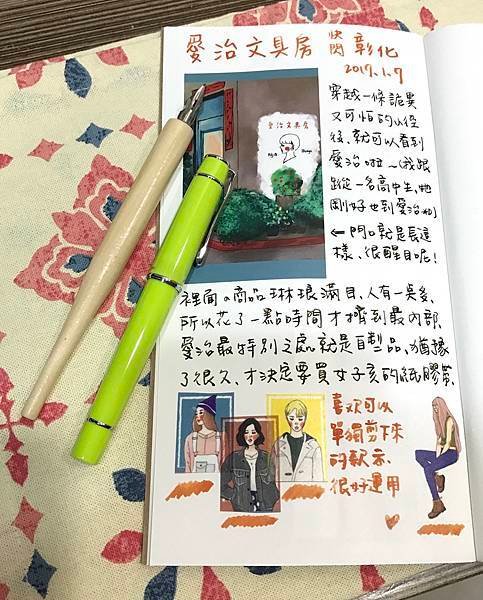 愛治文具房 快閃 彰化
2017.1.7
愛治文具房
穿越一條詭異
又可怕的小徑
後、就可以看到
愛治啦~(我跟
蹤一名高中生、他
剛好也到愛治XD)
←門口就是長這
樣、很醒目呢!
裡面の商品琳琅滿目、人有一點多、
所以花了一點時間才擠到最內部、
愛治最特別之處就是自製品、猶豫
了很久、才決定要買女子孩的紙膠帶、
喜歡可以
單獨剪下來
的款式、
很好運用